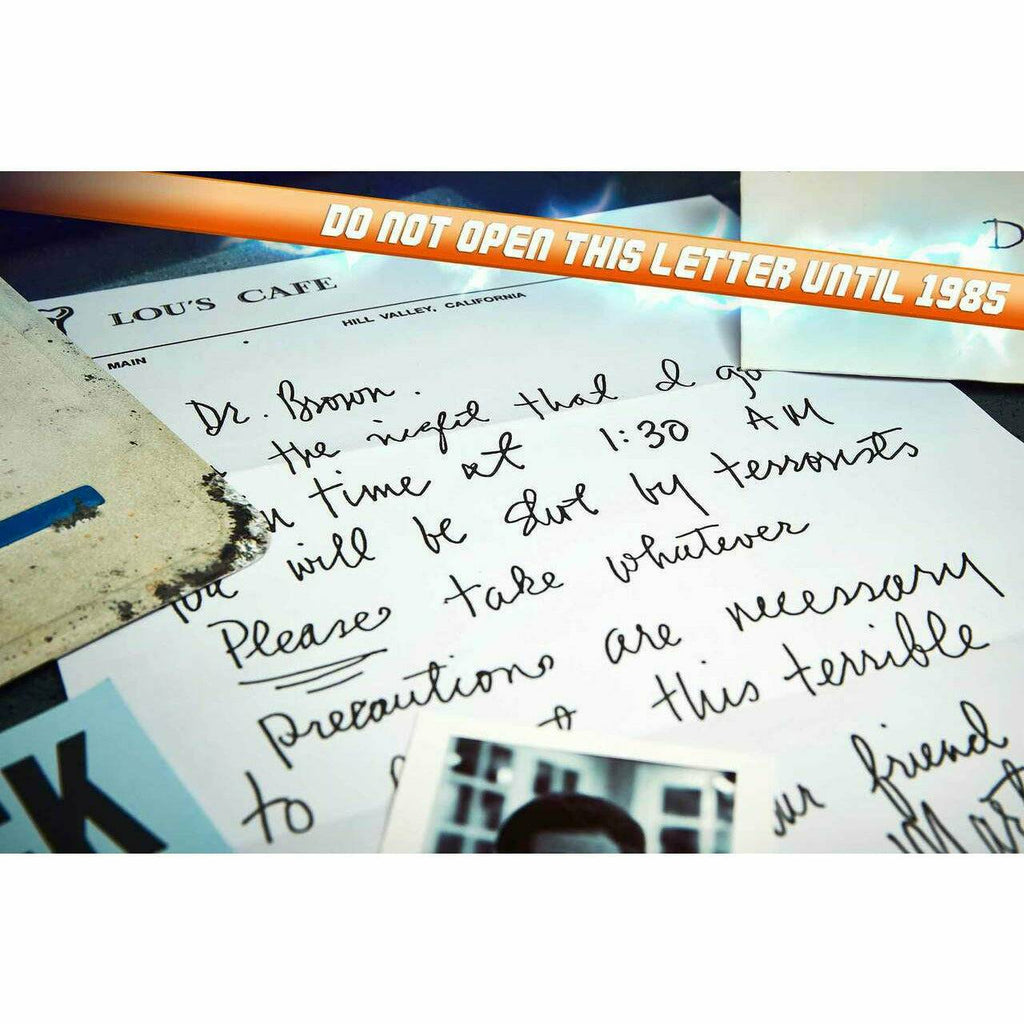 DO NOT OPEN THIS LETTER UNTIL 1985
D
LOU'S CAFE
HILL VALLEY, CALIFORNIA
MAIN
Dr. Brown.
the night that I go
time at 1:30 AM
You will be shot by terrorists
Please take whatever
precautions are necessary
to this terrible
friend
EK